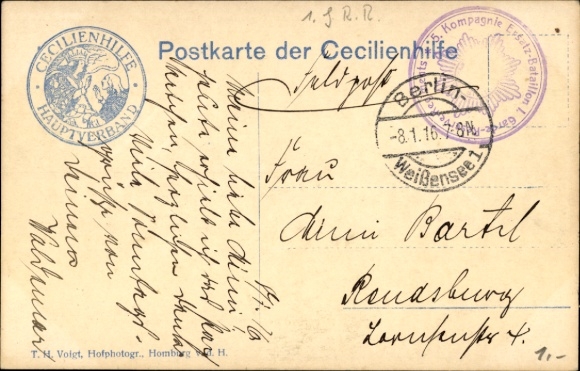 1. G. R. R.
CECILIENHILFE
HAUPTVERBAND
Postkarte der Cecilienhilfe
Feldpost
5. Kompagnie Ersatz-Bataillon 1. Gar
Berlin-
-8.1.16. 7-8N.
Weißensee 1
Frau
Mimi Bartel
Rendsburg
Lornsenstr 4.
Meine liebe Mimi,
heute erhielt ich das
herzlichen Dank
Viele
grüsse von
Deinem
Waldemar
T. H. Voigt, Hofphotogr., Homburg v. d. H.
1.-